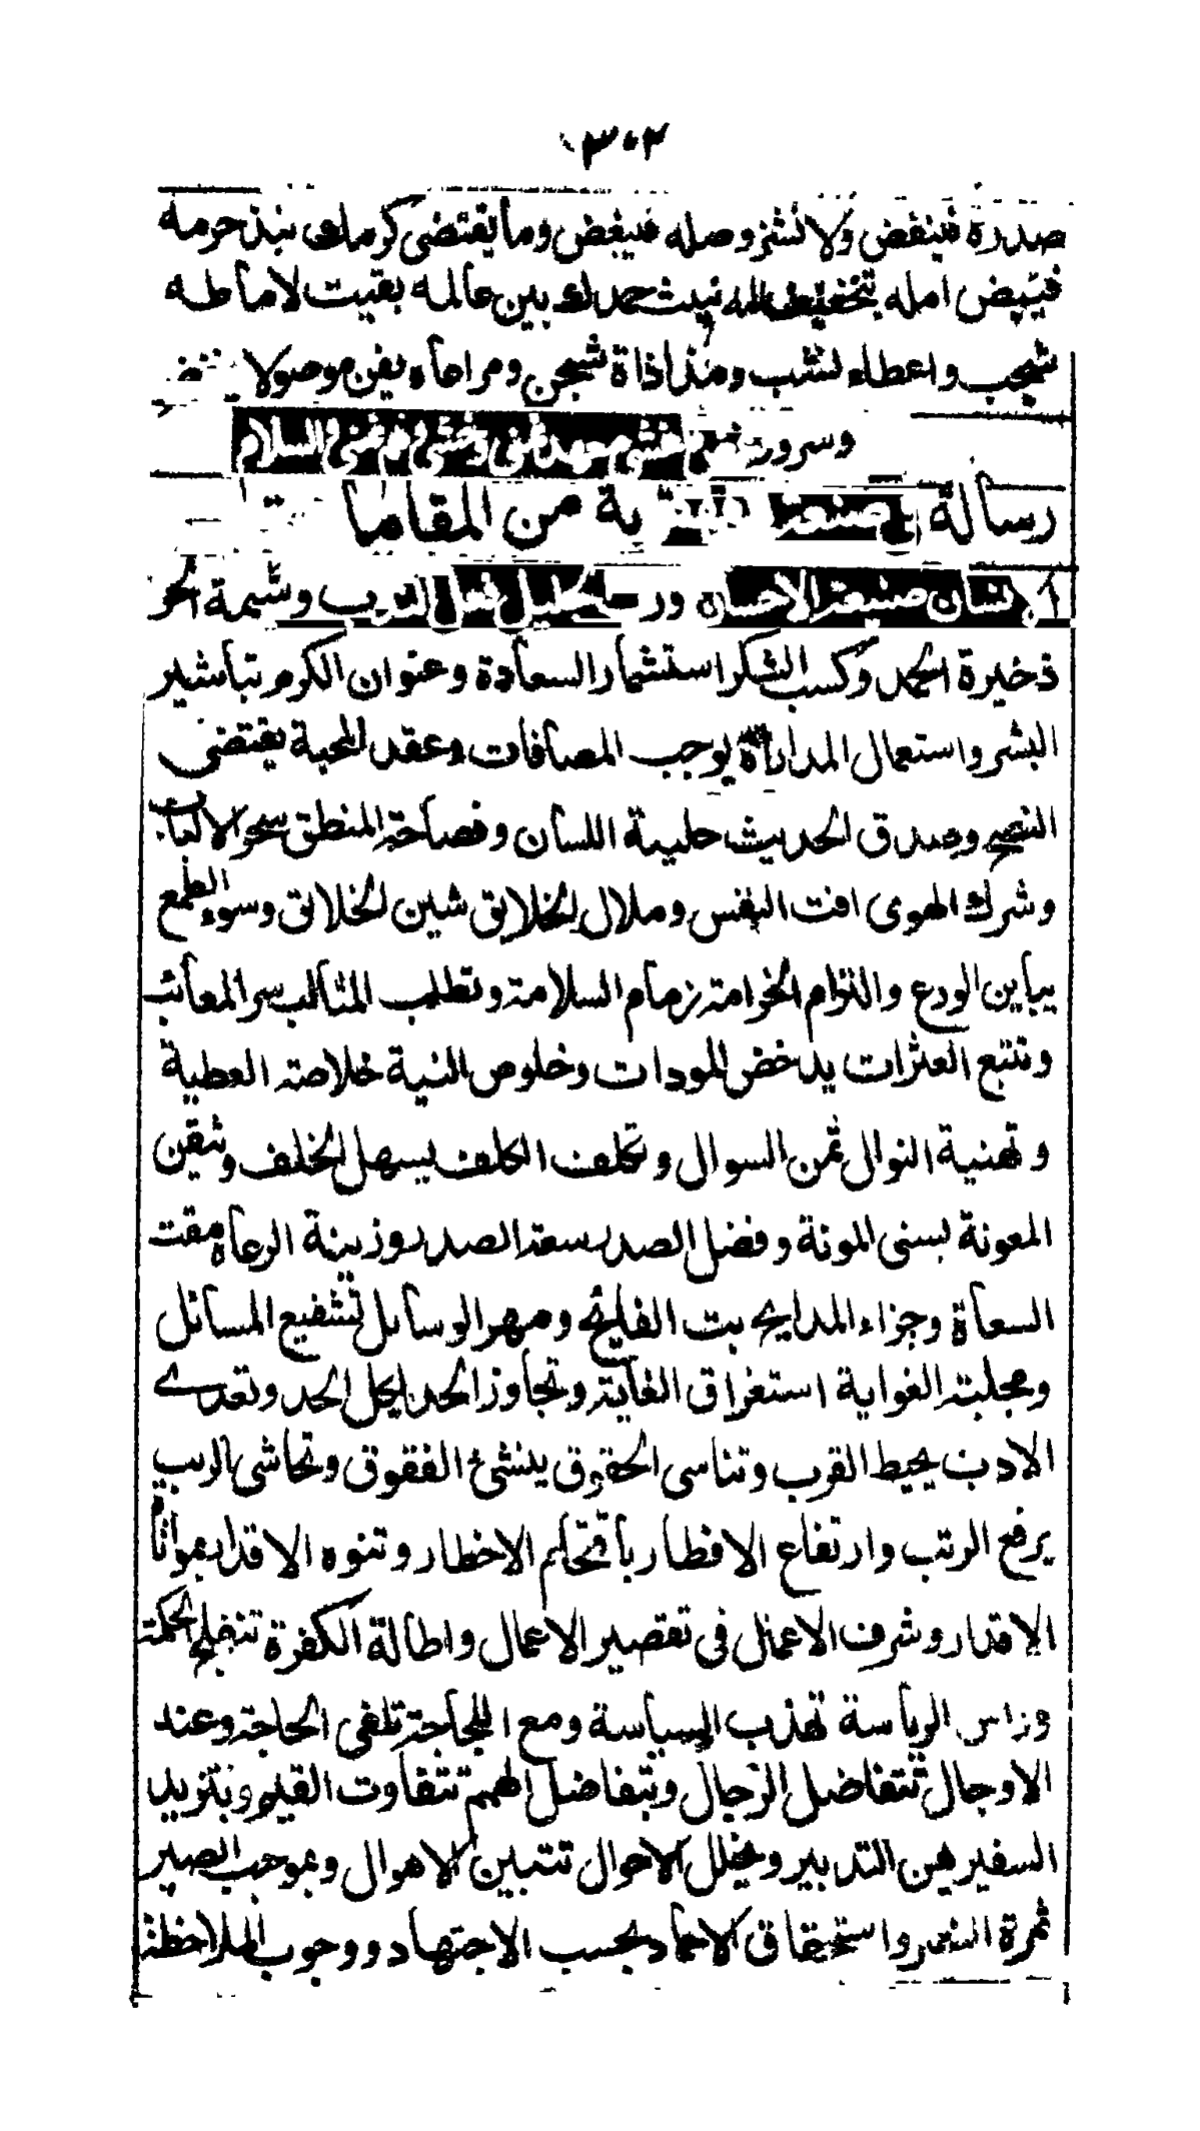 ٣٠٢
صدره فينفض ولا نشز وصله فيبغض وما يقتضى كرمك نبذ حرمه
فبيض امله بتخفيف المه ينث حمدك بين عالمه بقيت لاماطه
شجب واعطاء نشب ومداذاة شجن ومراعاه يفن موصولا
وسرور والسلام
رسالة من المقاما
الانسان صنيعة الاحسان ورب الجميل فعل الندب وشيمة الحر
ذخيرة الحمد وكسب الشكر استثمار السعادة وعنوان الكرم تباشير
البشر واستعمال المداراة يوجب المصافات وعقد المحبة يقتضى
النصح وصدق الحديث حلية اللسان وفصاحة المنطق سحر الالباب
وشرك الهوى افت النفس وملال الخلايق شين الخلائق وسوء الطمع
يباين الورع والتزام الخزامة زمام السلامة وتطلب المثالب سر المعائب
وتتبع العثرات يدخض المودات وخلوص النية خلاصة العطية
وتهنية النوال ثمن السوال وتكلف الكلف يسهل الخلف وتيقن
المعونة يسنى المونة وفضل الصدر سعة الصدر وزينة الرعاه مقت
السعاة وجزاء المدايح بث الفايح ومهر الوسايل تشفيع المسائل
ومجلبة الغواية استغراق الغاية وتجاوز الحد يكل الحد وتعدى
الادب يحبط القرب وتناسى الحقوق ينشئ الفقوق وتحاشى الريب
يرفع الرتب وارتفاع الافطار باقتحام الاخطار وتنوه الاقدار بمواتاة
الاقدار وشرف الاعمال فى تقصير الامال واطالة الفكرة تنقيح الحكمة
وراس الرياسة تهذب السياسة ومع اللجاجة تلغى الحاجة وعند
الاوجال تتفاضل الرجال وبتفاضل الهمم تتفاوت القيم وبتزيد
السفير يهن التدبير وبخلل الاحوال تتبين الاهوال وبموجب الصبر
ثمرة النصر واستحقاق الاحماد بحسب الاجتهاد ووجوب الملاحظة